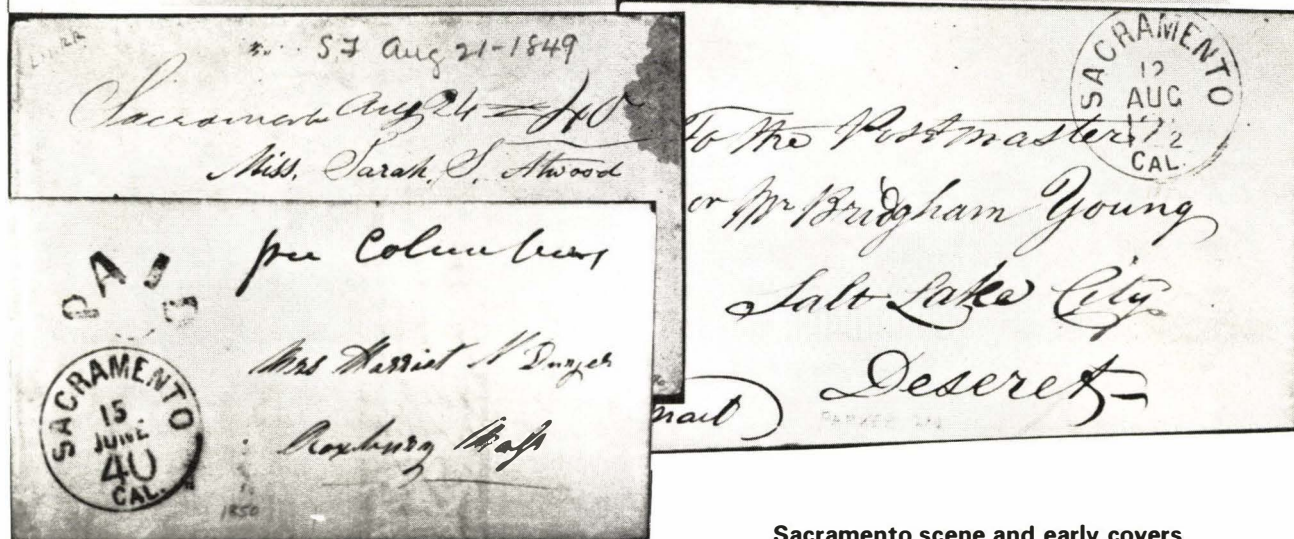 S.F Aug 21-1849
Sacramento Aug 24 = 40
Miss. Sarah. S. Atwood
PAID
per Columbus
SACRAMENTO
15
JUNE
40
CAL.
Mrs Harriet N
Roxbury Mass
1850
SACRAMENTO
12
AUG
CAL.
To the Postmaster
or Mr Bridgham Young
Salt Lake City
Deseret
mail
Sacramento scene and early covers